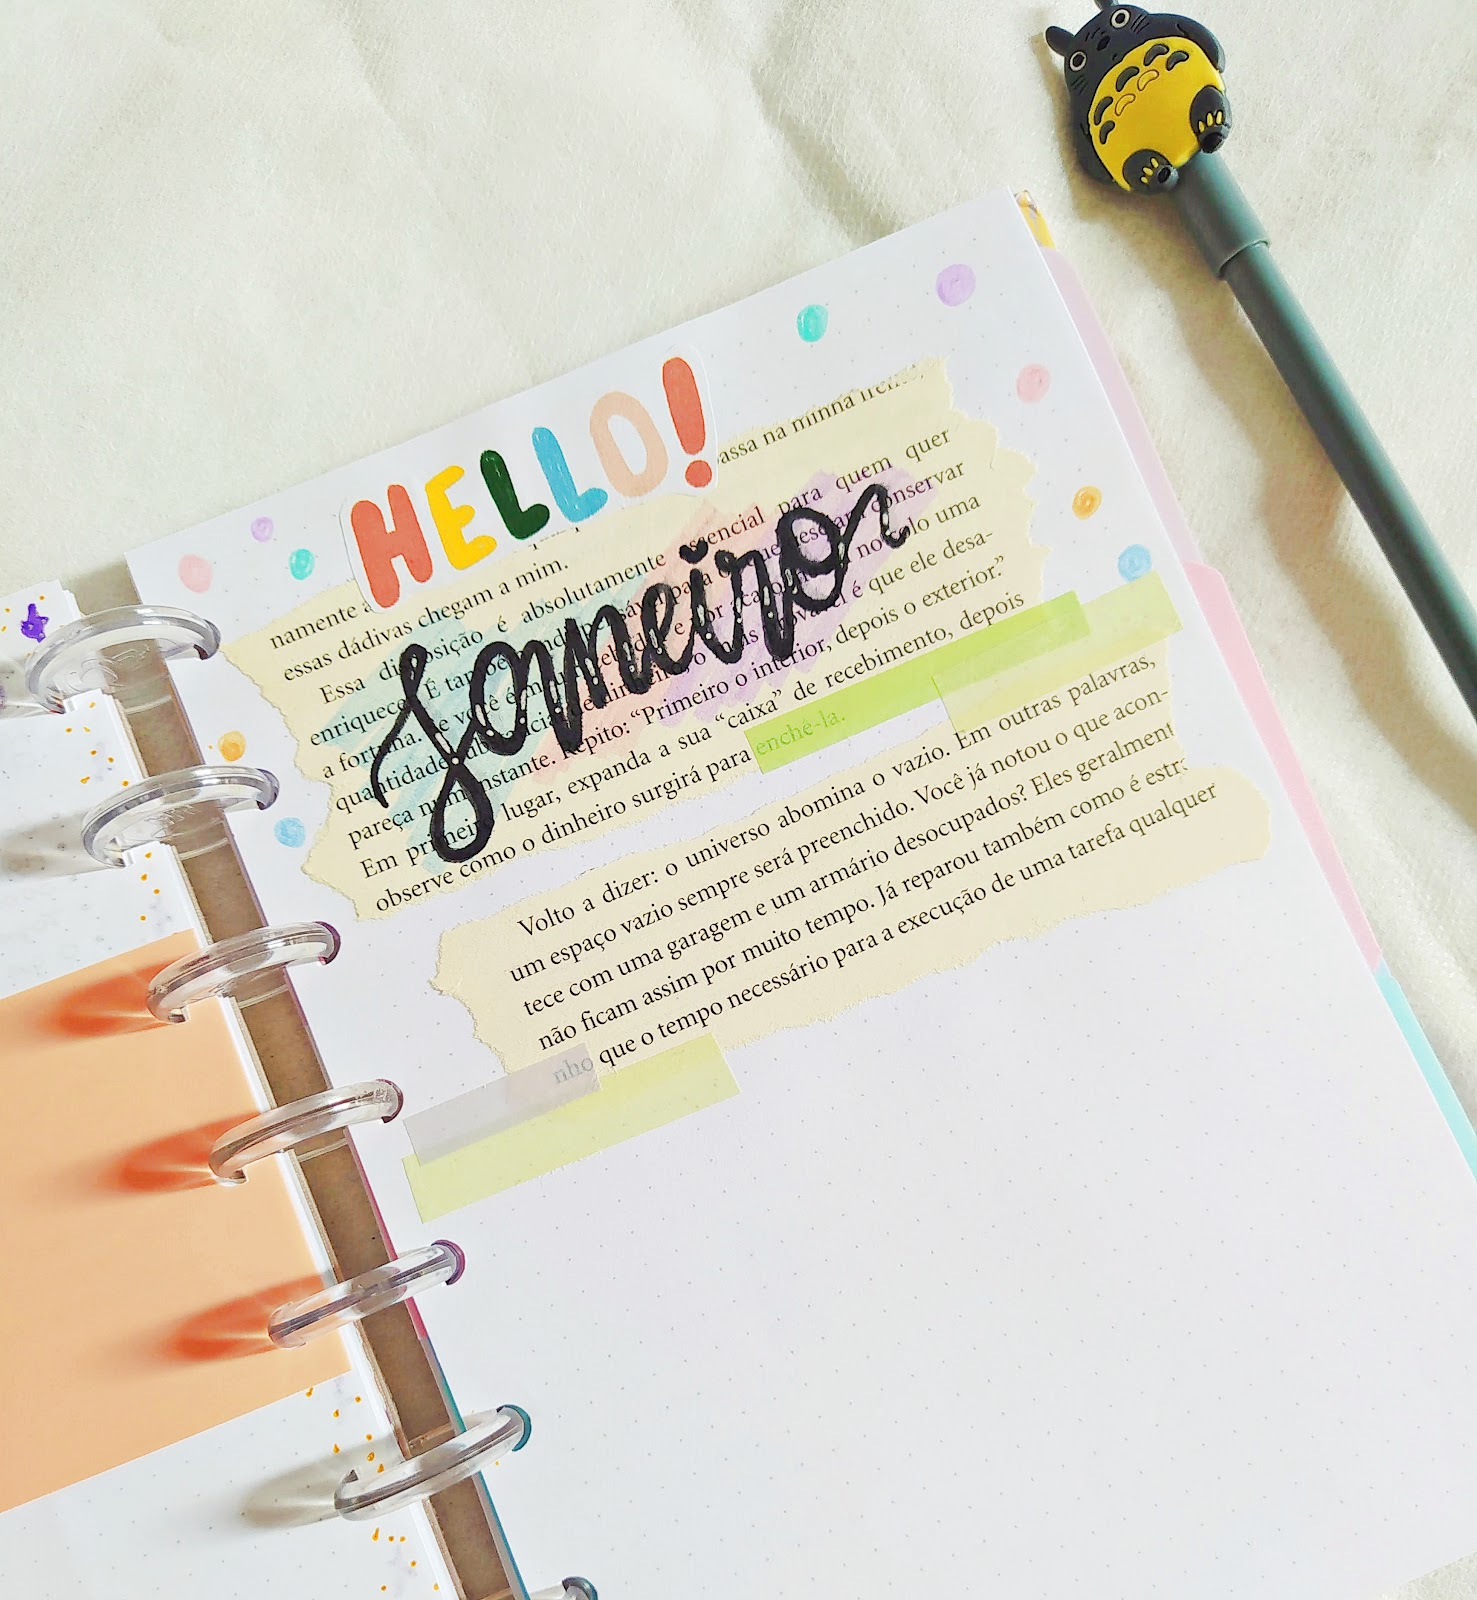 HELLO!
Janeiro
assa na minha frente,
namente a
essas dádivas chegam a mim.
Essa disposição é absolutamente essencial para quem quer
enriquecer. É também
conservar
a fortuna. Se você é no solo uma
quantidade é que ele desa-
pareça num instante. Repito: “Primeiro o interior, depois o exterior.”
Em primeiro lugar, expanda a sua “caixa” de recebimento, depois
observe como o dinheiro surgirá para enchê-la.
Volto a dizer: o universo abomina o vazio. Em outras palavras,
um espaço vazio sempre será preenchido. Você já notou o que acon-
tece com uma garagem e um armário desocupados? Eles geralment
não ficam assim por muito tempo. Já reparou também como é estra
nho que o tempo necessário para a execução de uma tarefa qualquer